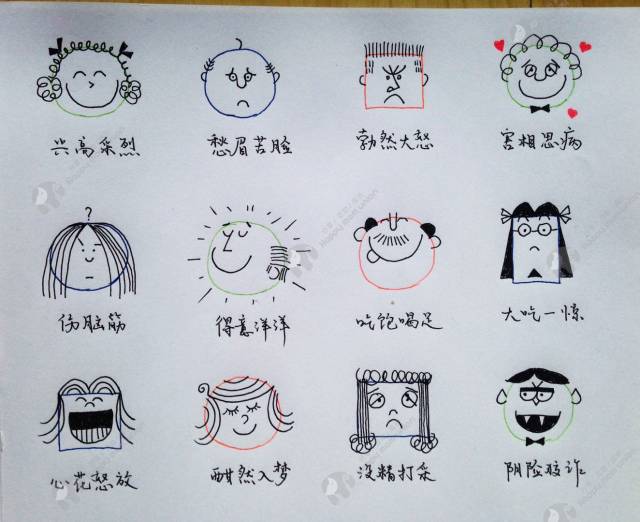 兴高采烈 愁眉苦脸 勃然大怒 害相思病
?
伤脑筋 得意洋洋 吃饱喝足 大吃一惊
心花怒放 酣然入梦 没精打采 阴险狡诈